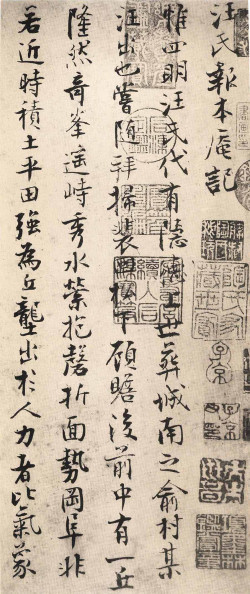 汪氏報本庵記
惟四明汪氏代有隱德上世葬城南之俞村某
汪出也嘗随拜掃裴回松下顧瞻後前中有一丘
隆然奇峯遥峙秀水縈抱磬折面勢岡阜非
若近時積土平田強為丘壟出於人力者比氣象
子京